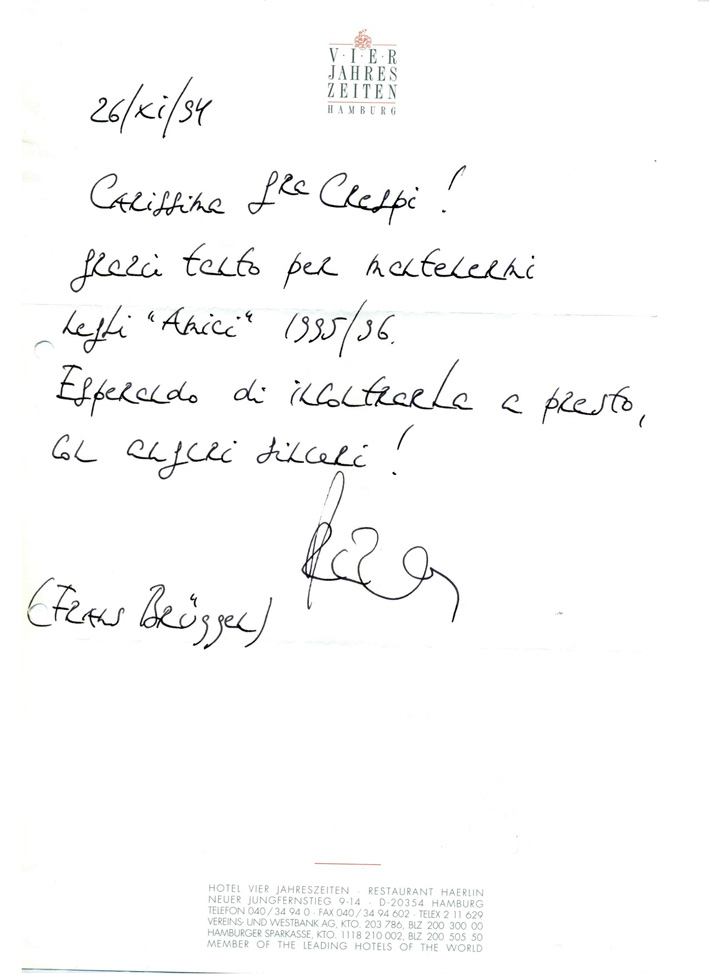 V·I·E·R
JAHRES
ZEITEN
HAMBURG
26/XI/94
Carissima Sra Crespi!
grazi tanto per mantenermi
negli "Amici" 1995/96.
Esperando di incontrarla a presto,
con auguri sinceri!
(Frans Brüggen)
HOTEL VIER JAHRESZEITEN · RESTAURANT HAERLIN
NEUER JUNGFERNSTIEG 9-14 · D-20354 HAMBURG
TELEFON 040/34 94 0 · FAX 040/34 94 602 · TELEX 2 11 629
VEREINS- UND WESTBANK AG, KTO. 203 786, BLZ 200 300 00
HAMBURGER SPARKASSE, KTO. 1118 210 002, BLZ 200 505 50
MEMBER OF THE LEADING HOTELS OF THE WORLD